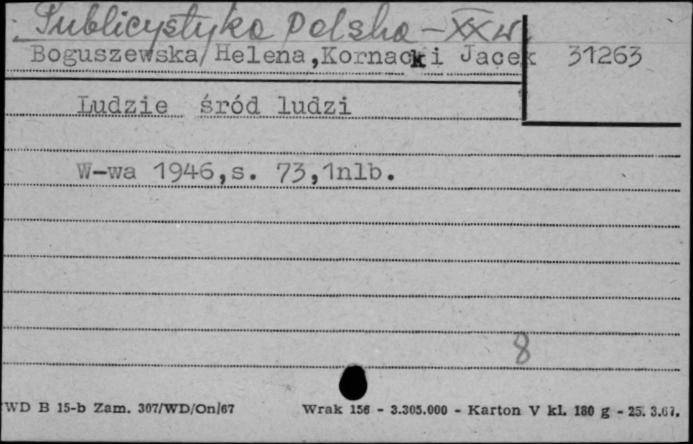 Publicystyka polska - XX w.
Boguszewska/Helena,Kornacki Jacek 31263
Ludzie śród ludzi
W-wa 1946,s. 73,1nlb.
8
WD B 15-b Zam. 307/WD/On/67 Wrak 156 - 3.305.000 - Karton V kl. 180 g - 25. 3.67.